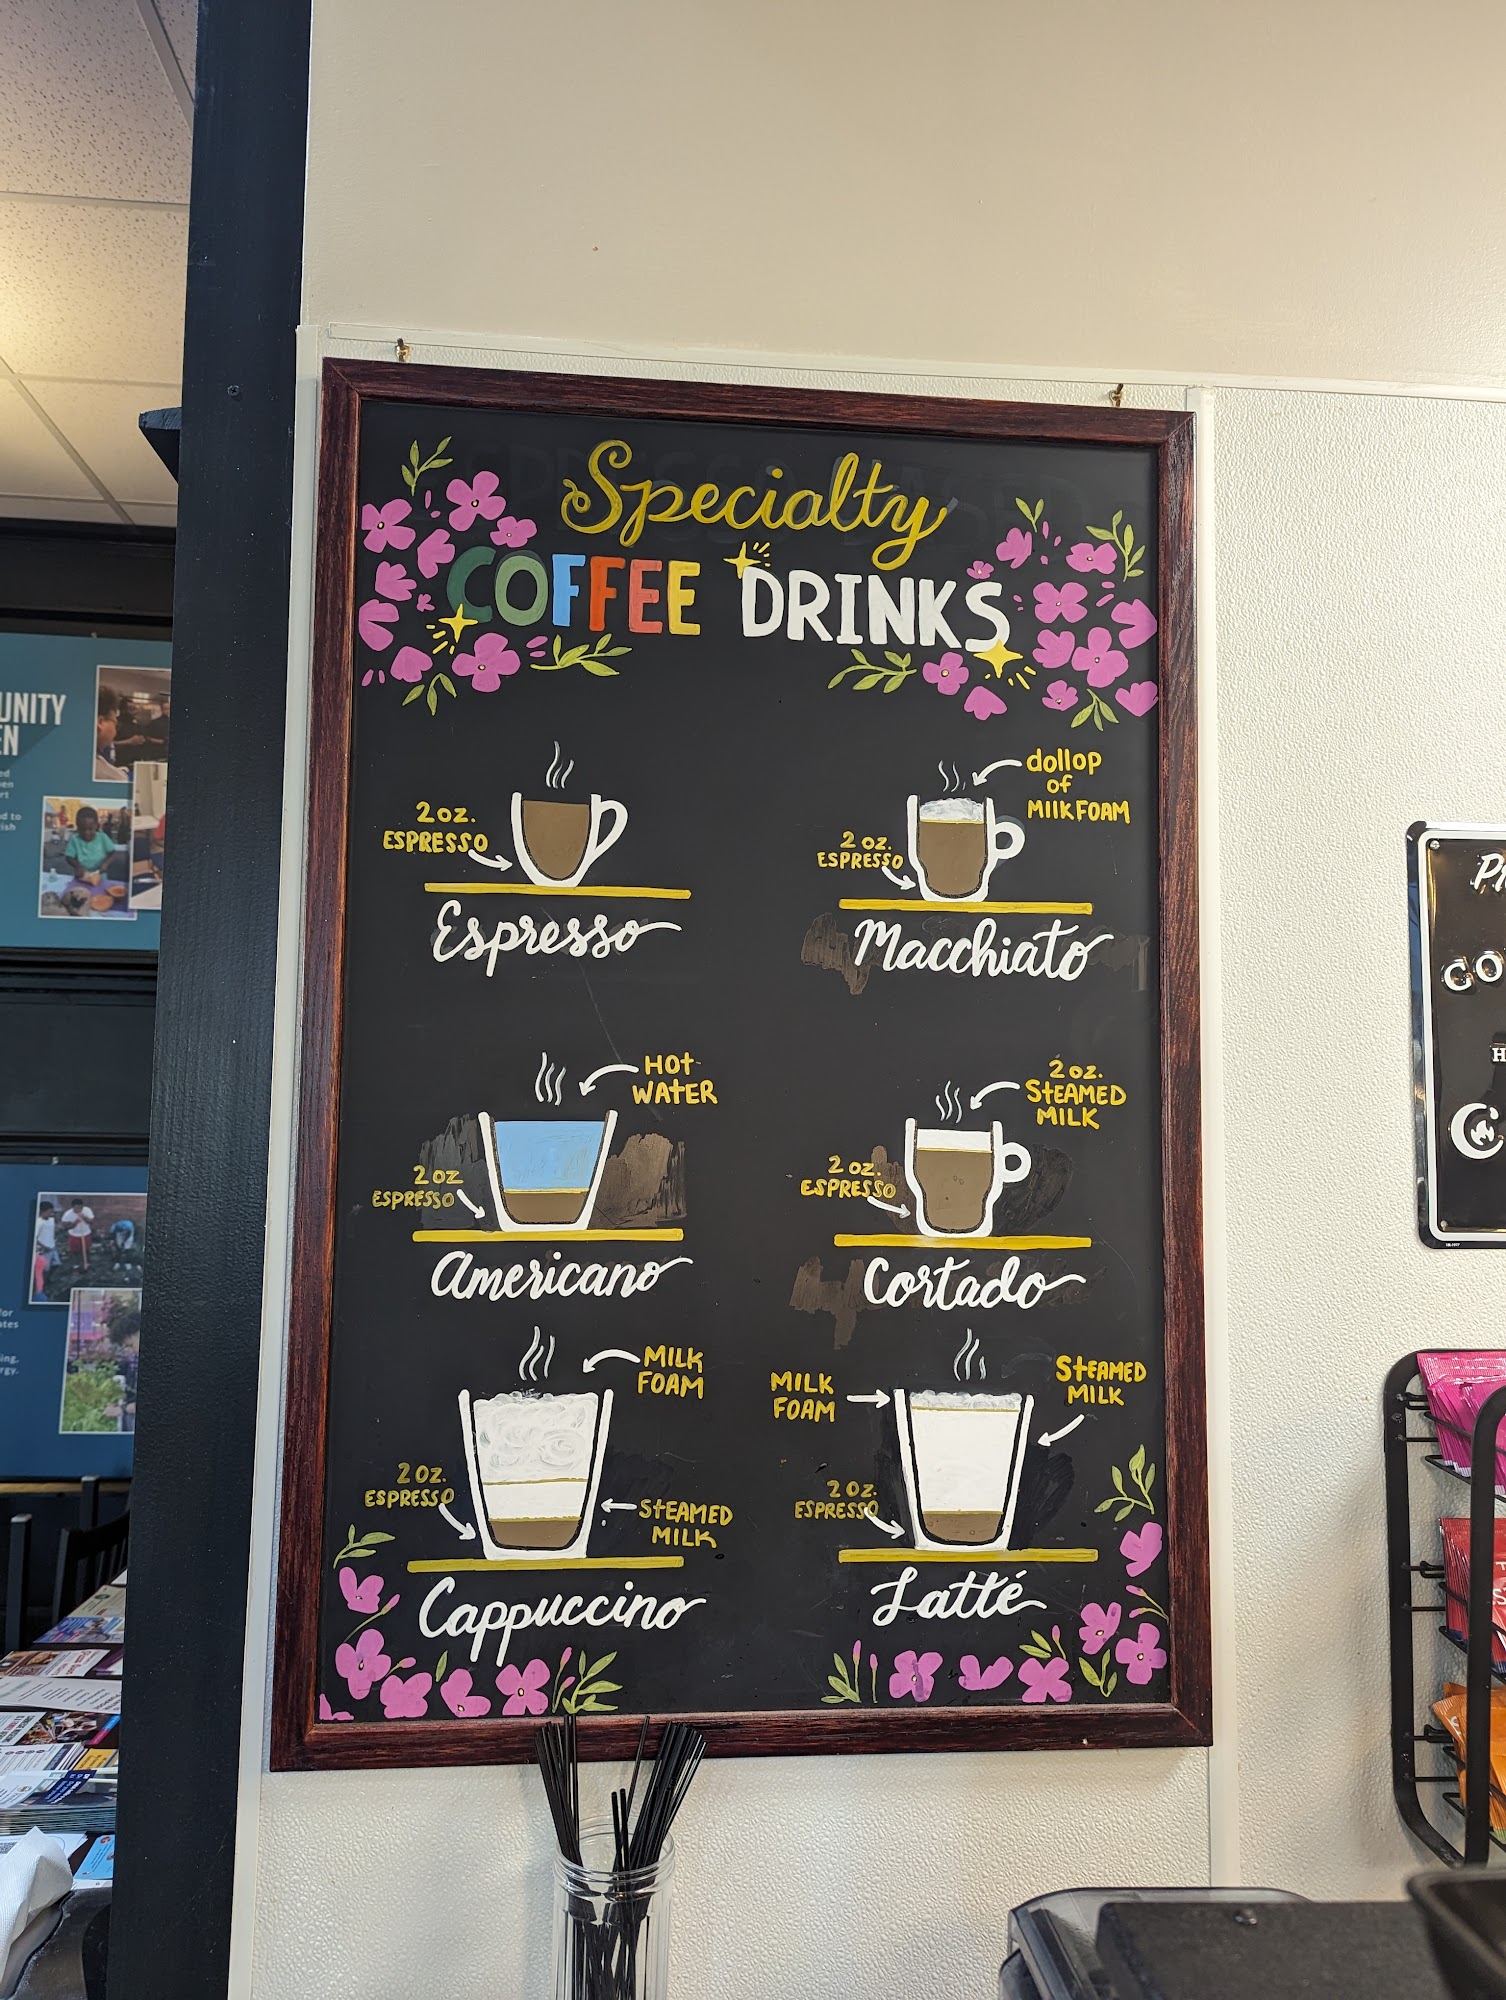 Specialty
COFFEE DRINKS
2 oz.
ESPRESSO
Espresso
dollop
of
MilKFOAM
2 oz.
ESPRESSO
Macchiato
HOt
WAtER
2 oz
ESPRESSO
Americano
2 oz.
StEAMED
MILK
2 oz.
ESPRESSO
Cortado
MILK
FOAM
2 oz.
ESPRESSO
StEAMED
MILK
Cappuccino
MILK
FOAM
StEAMED
MILK
2 oz.
ESPRESSO
Latté